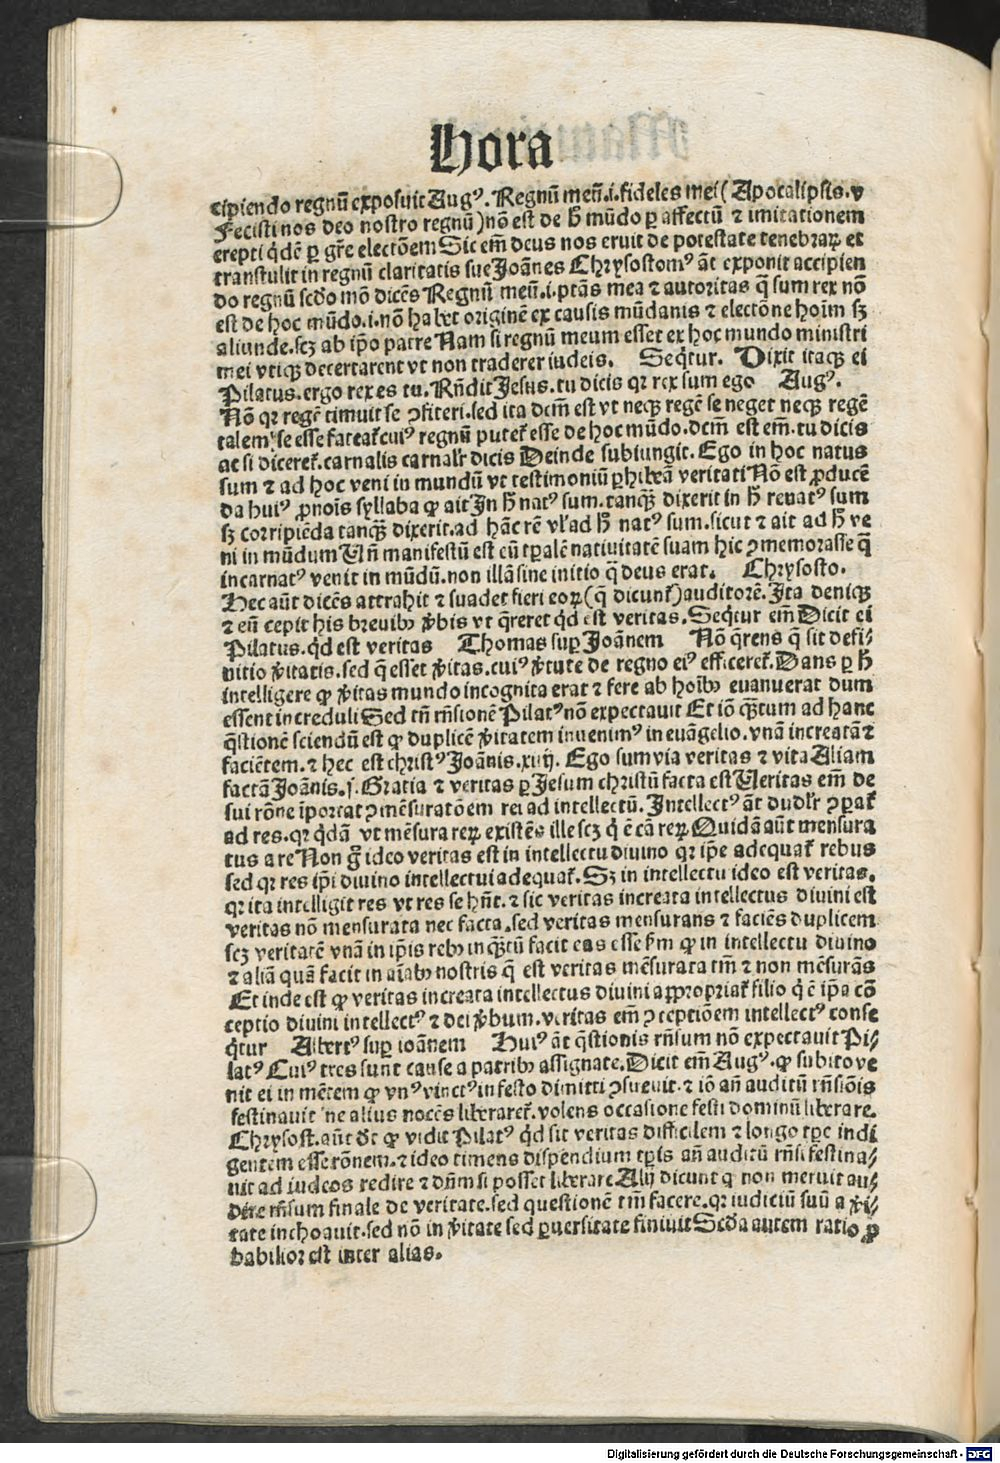 Hora
cipiendo regnū exposuit Augꝰ. Regnū meū.i.fideles mei (Apocalipsis.v
Fecisti nos deo nostro regnū) nō est de h̄ mūdo ꝑ affectū ⁊ imitationem
erepti q̇dē ꝑ gr̄e electōem Sic em̄ deus nos eruit de potestate tenebraꝝ et
transtulit in regnū claritatis sue Joānes Chrysostomꝰ āt exponit accipien
do regnū scd̄o mō dicēs Regnū meū.i.ptās mea ⁊ autoritas q̄ sum rex nō
est de hoc mūdo.i.nō habet originē ex causis mūdanis ⁊ electōne hoīm sꝫ
aliunde.scꝫ ab ip̄o patre Nam si regnū meum esset ex hoc mundo ministri
mei vtiqꝫ decertarent vt non traderer iudeis. Seq̄tur. Dixit itaqꝫ ei
Pilatus.ergo rex es tu. Rn̄dit Jesus.tu dicis qꝛ rex sum ego Augꝰ.
Nō qꝛ regē timuit se ꝯfiteri.sed ita dcm̄ est vt neqꝫ regē se neget neqꝫ regē
talem se esse fateat̄ cuiꝰ regnū putet̄ esse de hoc mūdo.dcm̄ est em̄.tu dicis
ac si diceret̄.carnalis carnalr̄ dicis Deinde subiungit. Ego in hoc natus
sum ⁊ ad hoc veni in mundū vt testimoniū ꝑhibeā veritati Nō est ꝓducē
da huiꝰ ꝓnoīs syllaba ꝙ ait Jn h̄ natꝰ sum.tanqꝫ̄ dixerit in h̄ re natꝰ sum
sꝫ corripiēda tanqꝫ̄ dixerit.ad hāc rē vl̄ ad h̄ natꝰ sum.sicut ⁊ ait ad h̄ ve
ni in mūdum Un̄ manifestū est eū tꝑalē natiuitatē suam hic ꝯmemorasse q̄
incarnatꝰ venit in mūdū.non illā sine initio q̄ deus erat. Chrysosto.
Hec aūt dicēs attrahit ⁊ suadet fieri eoꝝ (q̄ dicunt̄) auditorē. Jta deniqꝫ
⁊ eū cepit his breuibꝫ v̄bis vt q̄reret q̇d est veritas. Seq̄tur em̄ Dicit ei
Pilatus.q̇d est veritas Thomas suꝑ Joānem Nō q̄rens q̄ sit defi⸗
nitio v̄itatis.sed q̄ esset v̄itas.cuiꝰ v̄tute de regno eiꝰ efficeret̄. Dans ꝑ h̄
intelligere ꝙ v̄itas mundo incognita erat ⁊ fere ab hoībꝫ euanuerat dum
essent increduli Sed tn̄ rn̄sionē Pilatꝰ nō expectauit Et iō qꝫ̄tum ad hanc
q̄stionē sciendū est ꝙ duplicē v̄itatem inuenimꝰ in euāgelio.vnā increatā ⁊
faciētem.⁊ hec est christꝰ Joānis.xiiij. Ego sum via veritas ⁊ vita Aliam
factā Joānis.j. Gratia ⁊ veritas ꝑ Jesum christū facta est Ueritas em̄ de
sui rōne īportat ꝯmēsuratōem rei ad intellectū. Jntellectꝰ āt duplr̄ ꝯꝑat̄
ad res.qꝛ q̇dā vt mēsura reꝝ existēs ille scꝫ q̇ ē cā reꝝ Quidā aūt mensura
tus a re Non g̊ ideo veritas est in intellectu diuino qꝛ ip̄e adequat̄ rebus
sed qꝛ res ip̄i diuino intellectui adequat̄. Sꝫ in intellectu ideo est veritas.
qꝛ ita intelligit res vt res se hn̄t.⁊ sic veritas increata intellectus diuini est
veritas nō mensurata nec facta.sed veritas mensurans ⁊ faciēs duplicem
scꝫ veritatē vnā in ip̄is rebꝫ inqꝫ̄tū facit eas esse ẜm ꝙ in intellectu diuino
⁊ aliā quā facit in aīabꝫ nostris q̄ est veritas mēsurata tm̄ ⁊ non mēsurās
Et inde est ꝙ veritas increata intellectus diuini appropriat̄ filio q̇ ē ip̄a cō
ceptio diuini intellectꝰ ⁊ dei v̄bum.veritas em̄ ꝯceptiōem intellectꝰ conse
q̄tur Albertꝰ suꝑ ioānem Huiꝰ āt q̄stionis rn̄sum nō expectauit Pi⸗
latꝰ Cuiꝰ tres sunt cause a patribꝫ assignate. Dicit em̄ Augꝰ.ꝙ subito ve
nit ei in mētem ꝙ vnꝰ vinctꝰ in festo dimitti ꝯsueuit.⁊ iō an̄ auditū rn̄siōis
festinauit ne alius nocēs liberaret̄.volens occasione festi dominū liberare.
Chrysost.aūt dt̄ ꝙ vidit Pilatꝰ q̇d sit veritas difficilem ⁊ longo tꝑe indi
gentem esse rōnem.⁊ ideo timens dispendium tꝑis an̄ auditū rn̄si festina⸗
uit ad iudeos redire ⁊ dn̄m si posset liberare Alij dicunt ꝙ non meruit au⸗
dire rn̄sum finale de veritate.sed questionē tm̄ facere.qꝛ iudiciū suū a v̄i⸗
tate inchoauit.sed nō in v̄itate sed ꝑuersitate finiuit Scd̄a autem ratio ꝓ
babilior est inter alias.
Digitalisierung gefördert durch die Deutsche Forschungsgemeinschaft - DFG